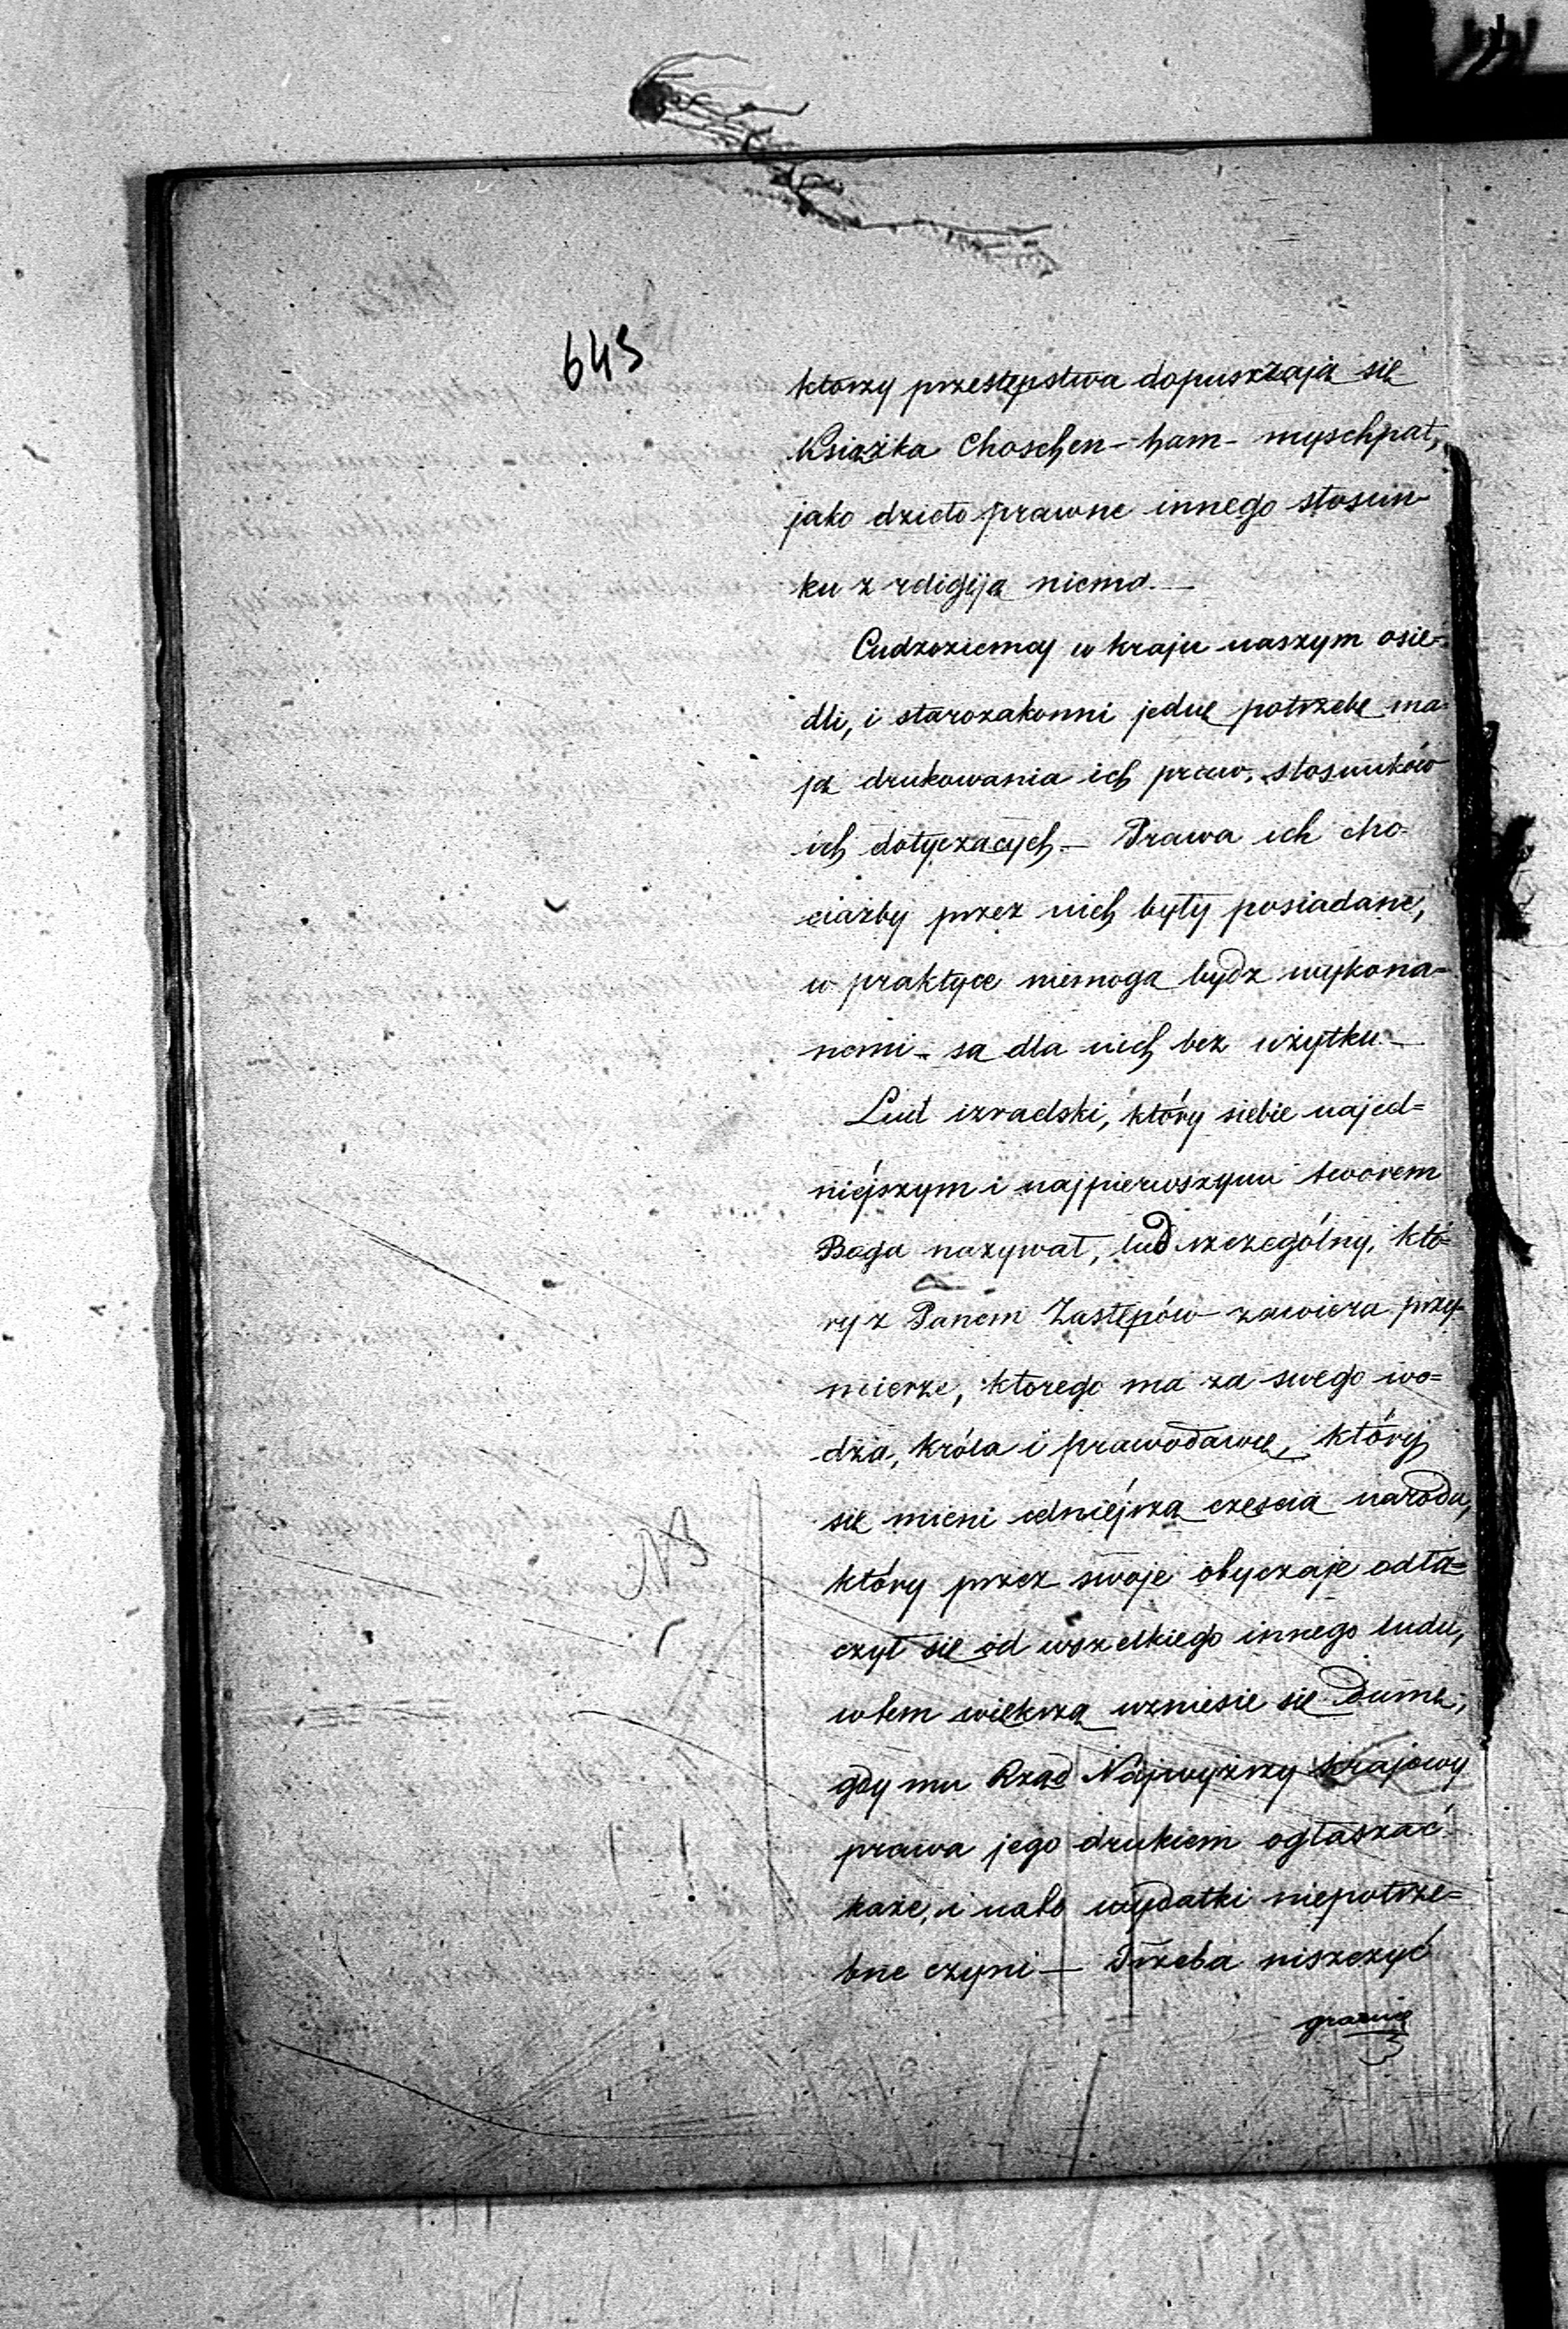 643
ktorzy przestępstwa dopuszczają się
Książka Choschen-ham-myschpat,
jako dzieło prawne innego stosun-
ku z religiją niema.—
Cudzoziemcy w kraju naszym osie=
dli, i starozakonni jednę potrzebę ma=
ją drukowania ich praw, stosunków
ich dotyczących— Prawa ich cho-
ciażby przez nich były posiadane,
w praktyce niemogą bydz wykona=
nemi - są dla nich bez użytku—
Lud izraelski, który siebie najcel=
niéjszym i najpierwszym tworem
Boga nazywał, lud szczególny, któ-
ry z Panem Zastępów zawiera przy-
mierze, ktorego ma za swego wo=
dza, króla i prawodawcę, który
się mieni celniéjszą częscią narodu,
który przez swoje obyczaje odłą=
czył się od wszelkiego innego ludu,
w tem większą wzniesie się dumę,
gdy mu Rząd Najwyższy krajowy
prawa jego drukiem ogłaszać
każe, i na to wydatki niepotrze=
bne czyni— Trzeba niszczyć
granice
NB